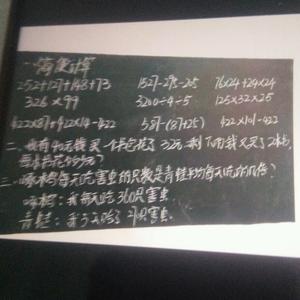 一、简便计算
252+127+148+73 1527-275-205 76×24+24×24
326×99 3200÷4÷5 125×32×25
422×87+422×14-422 587-(87+25) 422×101-422
二、我有40元钱买一个书包花了32元,剩下的我又买了2本书,
每本书花多少元?
三、啄木鸟每天吃害虫的只数是青蛙平均每天吃的几倍?
啄木鸟:我每天吃360只害虫
青蛙:我3天吃了 只害虫